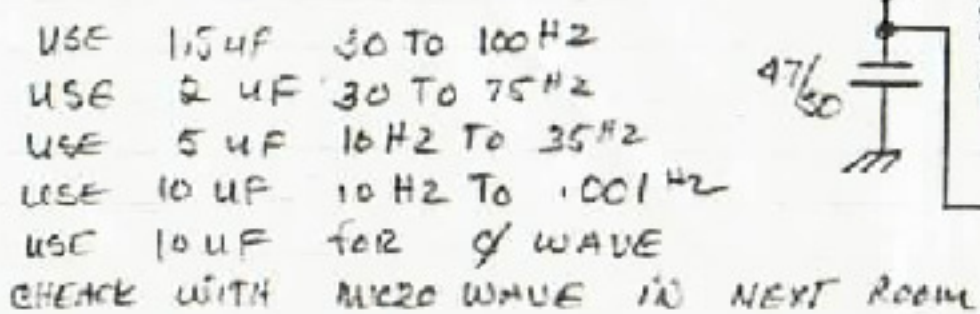 USE 1,5 uF 30 TO 100 HZ
USE 2 uF 30 TO 75 HZ
USE 5 uF 10 HZ TO 35 HZ
USE 10 uF 10 HZ TO .001 HZ
USE 10 uF FOR Ø WAVE
CHEACK WITH MICRO WAVE IN NEXT ROOM
47/50